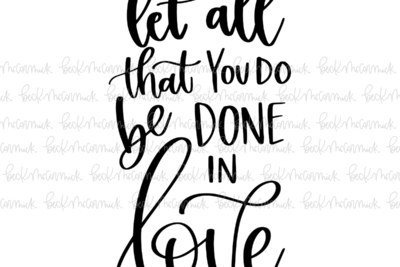 let all
that YOU DO
be DONE
IN
love